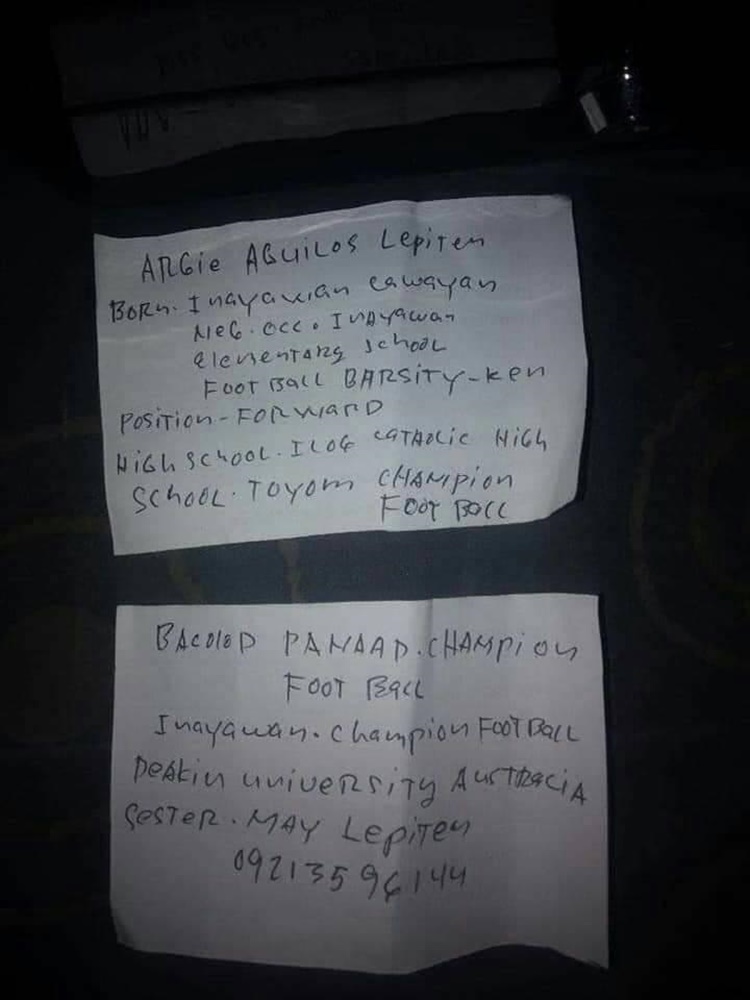 ARGie AGUiLOS Lepiten
BORN. Inayawian cawayan
NEG.OCC. INAyawan
eLementarg school
FOOT BaLL BARSITY-Ken
POSITION-FORWARD
HIGH SCHOOL. ILOG CATHOLIC HIGH
SCHOOL. TOYOM CHAMPION
FOOT BaLL
BACOLOD PANAAD.CHAMPION
FOOT BaLL
Inayawan. champion FOOTBaLL
DeAKin university AUSTRALIA
SESTER. MAY Lepiten
09213596144